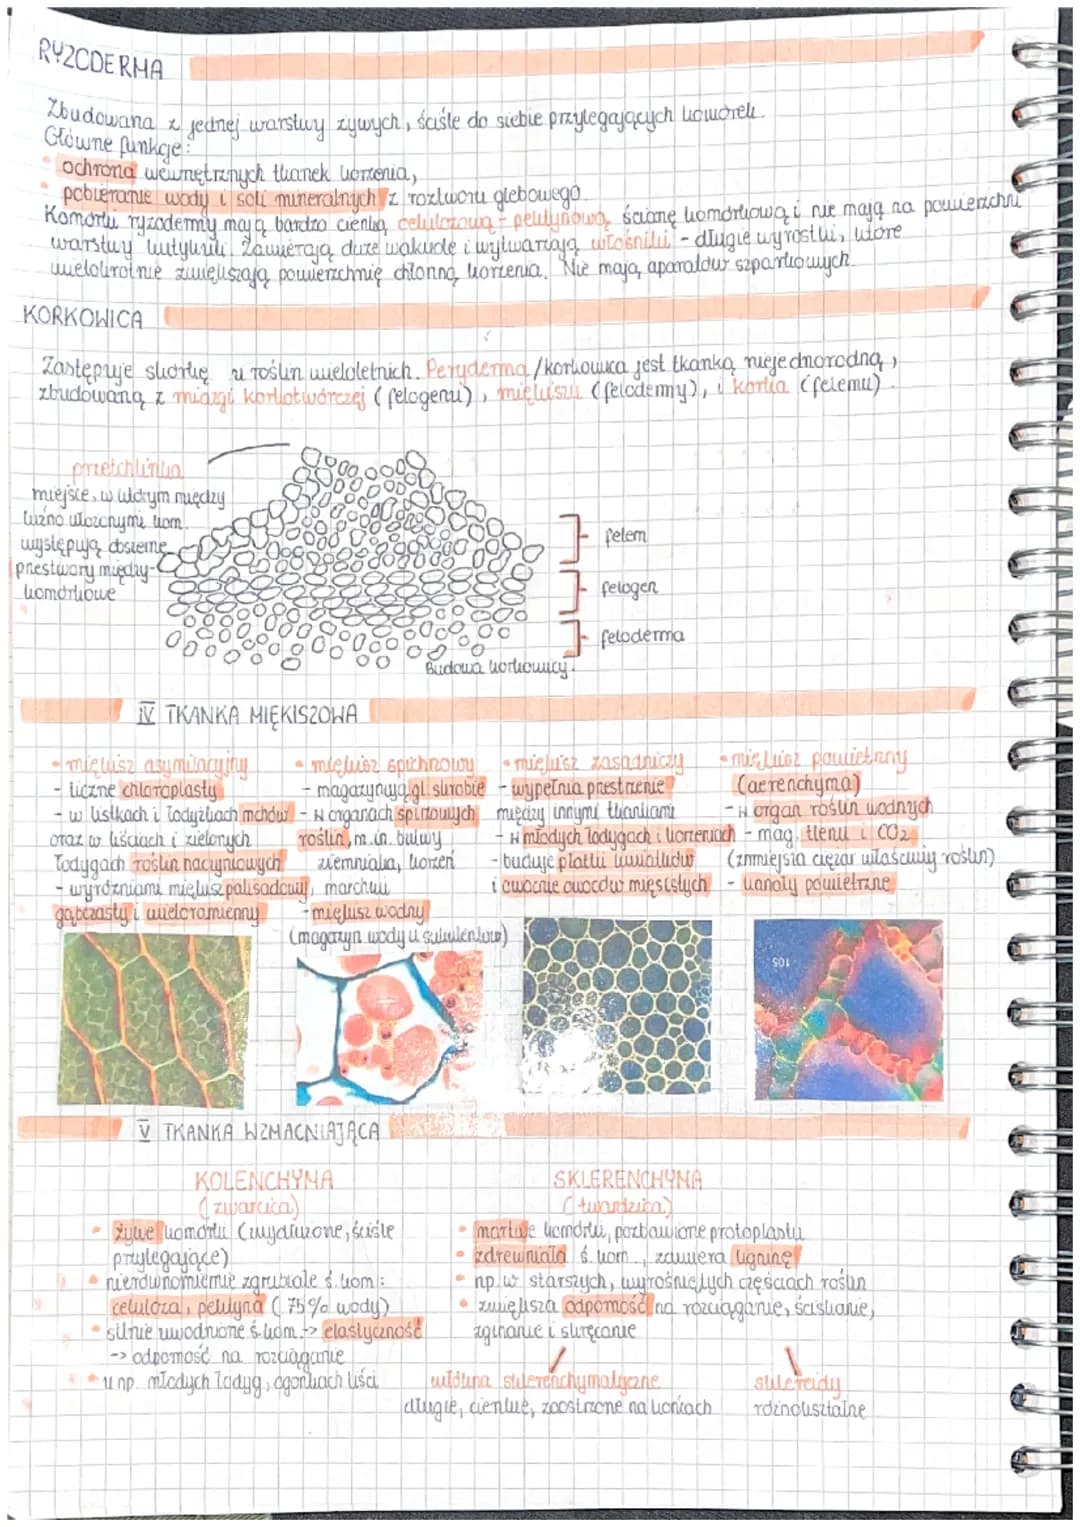 RYZODERMA
Zbudowana z jednej warstwy żywych, ściśle do siebie przylegających komórek.
Główne funkcje:
• ochrona wewnętrznych tkanek korzenia,
• pobieranie wody i soli mineralnych z roztworu glebowego.
Komórki ryzodermy mają bardzo cienką celulozową - pektynową ścianę komórkową i nie mają na powierzchni
warstwy kutykuli. Zawierają duże wakuole i wytwarzają włośniki - długie wyrostki, które
wielokrotnie zwiększają powierzchnię chłonną korzenia. Nie mają aparatów szparkowych.
KORKOWICA
Zastępuje skórkę u roślin wieloletnich. Peryderma / korkowica jest tkanką niejednorodną,
zbudowaną z miazgi korkotwórczej (felogenu), miękiszu (felodermy), i korka (felemu).
przetchlinka
miejsce, w którym między
luźno ułożonymi kom.
występują obszerne
przestwory między-
komórkowe
felem
felogen
feloderma
Budowa korkowicy.
IV TKANKA MIĘKISZOWA
• miękisz asymilacyjny
- liczne chloroplasty
- w listkach i łodyżkach mchów
oraz w liściach i zielonych
łodygach roślin naczyniowych
- wyróżniamy miękisz palisadowy,
gąbczasty i wieloramienny
• miękisz spichrzowy
- magazynują gł. skrobię
- w organach spizowych
roślin, m.in. bulwy
ziemniaka, korzeń
marchwi
- miękisz wodny
(magazyn wody u sukulentów)
• miękisz zasadniczy
- wypełnia przestrzenie
między innymi tkankami
- w młodych łodygach i korzeniach
- buduje płatki kwiatków
i owocnie owoców mięsistych
• miękisz powietrzny
(aerenchyma)
- w organ roślin wodnych
- mag. tlenu i CO2
(zmniejsza ciężar właściwy roślin)
- kanały powietrzne
V TKANKA WZMACNIAJĄCA
KOLENCHYMA
(zwarcica)
• żywe komórki (wydłużone, ściśle
przylegające)
• nierównomiernie zgrubiałe ś. kom:
celuloza, pektyna (75% wody)
• silnie uwodnione ś. kom -> elastyczność
-> odporność na rozciąganie
• u np. młodych łodyg, ogonkach liści
SKLERENCHYMA
(twardzica)
• martwe komórki, pozbawione protoplastu
• zdrewniała ś. kom., zawiera ligninę
• np. w starszych, wyrośniętych częściach roślin
• zwiększa odporność na rozciąganie, ściskanie,
zginanie i skręcanie
włókna sklerenchymatyczne
długie, cienkie, zaostrzone na końcach
sklereidy
różnokształtne